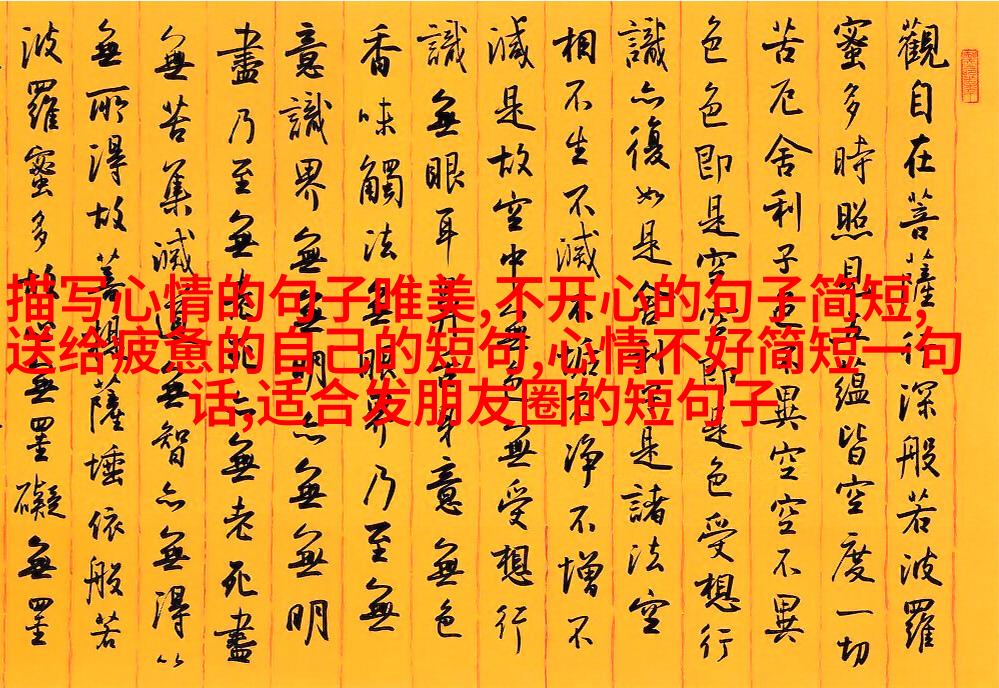 描写心情的句子唯美,不开心的句子简短,
送给疲惫的自己的短句,心情不好简短一句
话,适合发朋友圈的短句子
觀自在菩薩行深般若波羅
蜜多時照見五蘊皆空度一切
苦厄舍利子色不異空空不異
色色即是空空即是色受想行
識亦復如是舍利子是諸法空
相不生不滅不垢不淨不增不
減是故空中無色無受想行
識無眼耳鼻舌身意無色
香味觸法無眼界乃至無
意識界無無明亦無無明
盡乃至無老死亦無老死盡
無苦集滅道無智亦無得以
無所得故菩提薩埵依般若
波羅蜜多故心無罣礙無罣